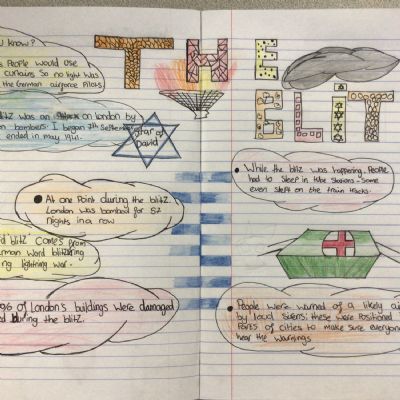 THE
BLIT
know?
People would use
curtains so no light was
the German airforce Pilots
blitz was an on London by
bombers. I began 7th September
ended in may 1941.
Star of
David
At one Point during the blitz.
London was bombed for 57
nights in a row
blitz comes from
word blitzkrieg
lightning war.
of London's buildings were damaged
during the blitz.
While the blitz was happening. People
had to sleep in tube stations - Some
even slept on the train tracks.
People were warned of a likely
by loud Sirens; these were Positioned
Parts of cities to make sure everyone
hear the warnings